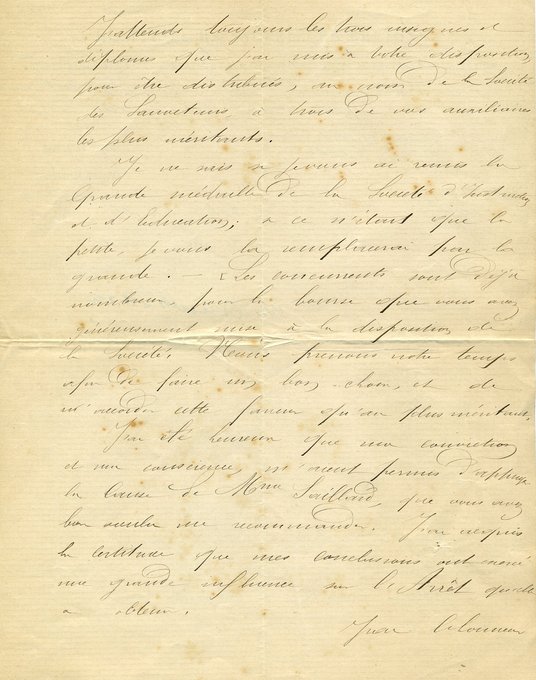 J'attends toujours les trois insignes et
diplomes que j'ai mis à votre disposition
pour être distribués, au nom de la Société
des Sauveteurs, à trois de vos auxiliaires
les plus méritants.
Je ne sais si je vous ai remis la
Grande médaille de la Société d'Instruction
et d'Education; si ce n'était que la
petite, je vous la remplacerai par la
grande. — Les concurrents sont déjà
nombreux pour la bourse que vous avez
généreusement mise à la disposition de
la Société. Nous prenons notre temps
afin de faire un bon choix, et de
n'accorder cette faveur qu'au plus méritant.
J'ai été heureux que ma conviction
et ma conscience m'aient permis d'appuyer
la cause de Mme Saillard, que vous avez
bien voulu me recommander. J'ai acquis
la certitude que mes conclusions ont exercé
une grande influence sur l'Arrêt qu'elle
a obtenu.